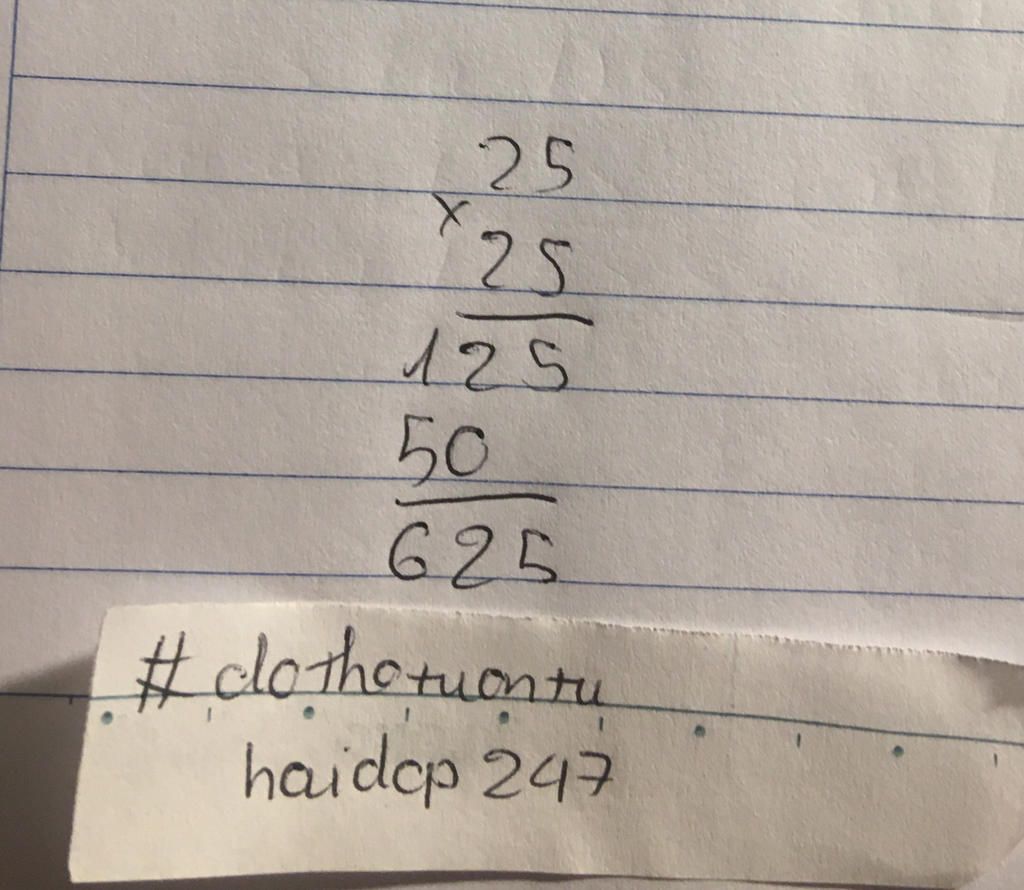 25
×
25
125
50
625
#clothotuontu
haidcp 247